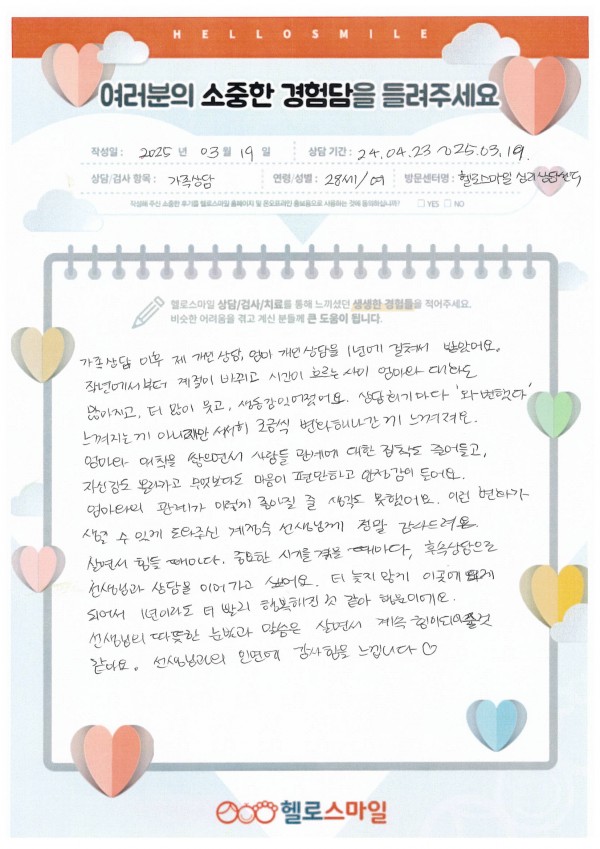 HELLOSMILE
여러분의 소중한 경험담을 들려주세요
작성일 : 2025 년 03 월 19 일 상담 기간 : 24.04.23 ~ 2025.03.19.
상담/검사 항목 : 가족상담 연령/성별 : 28세/여 방문센터명 : 헬로스마일 심리상담센터
작성해 주신 소중한 후기를 헬로스마일 홈페이지 및 온오프라인 홍보용으로 사용하는 것에 동의하십니까? YES NO
헬로스마일 상담/검사/치료를 통해 느끼셨던 생생한 경험들을 적어주세요.
비슷한 어려움을 겪고 계신 분들께 큰 도움이 됩니다.
가족상담 이후 제 개인 상담, 엄마 개인상담을 1년에 걸쳐서 받았어요.
작년에서부터 계절이 바뀌고 시간이 흐르는 사이 엄마와 대화도
많아지고, 더 많이 웃고, 생동감있어졌어요. 상담회기마다 '와 변했다'
느껴지는게 아니지만 서서히 조금씩 변화해나간게 느껴져요.
엄마와 애착을 쌓으면서 사람들 관계에 대한 집착도 줄어들고,
자신감도 올라가고 무엇보다도 마음이 편안하고 안정감이 들어요.
엄마와의 관계가 이렇게 좋아질 줄 생각도 못했어요. 이런 변화가
생길 수 있게 도와주신 계정숙 선생님께 정말 감사드려요.
살면서 힘들 때마다, 중요한 시기를 겪을 때마다, 후속상담으로
선생님과 상담을 이어가고 싶어요. 더 늦지 않게 이곳에 오게
되어서 1년이라도 더 빨리 행복해진 것 같아 행운이에요.
선생님의 따뜻한 눈빛과 말씀은 살면서 계속 힘이되어줄것
같아요. 선생님과의 인연에 감사함을 느낍니다 ♡
헬로스마일